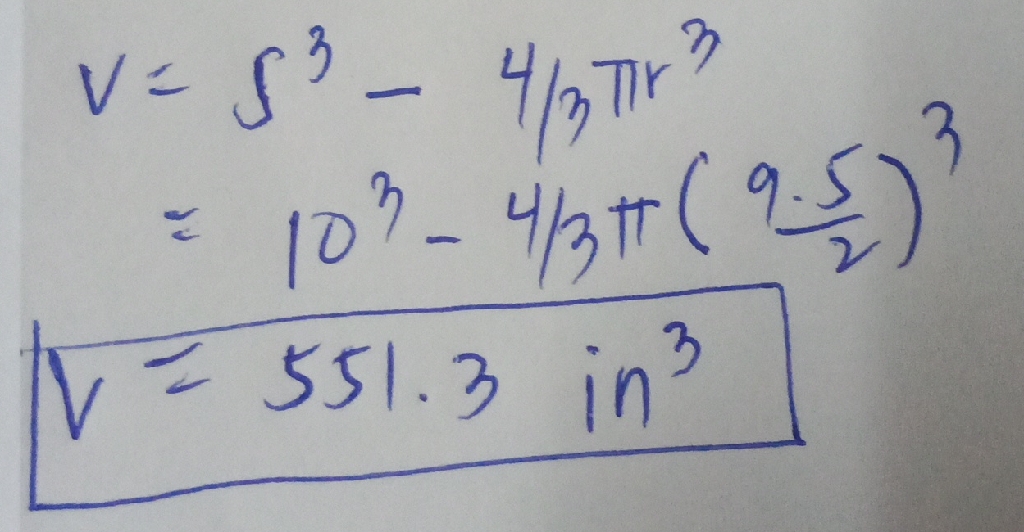 V = S³ - 4/3 πr³
= 10³ - 4/3 π (9.5/2)³
V = 551.3 in³